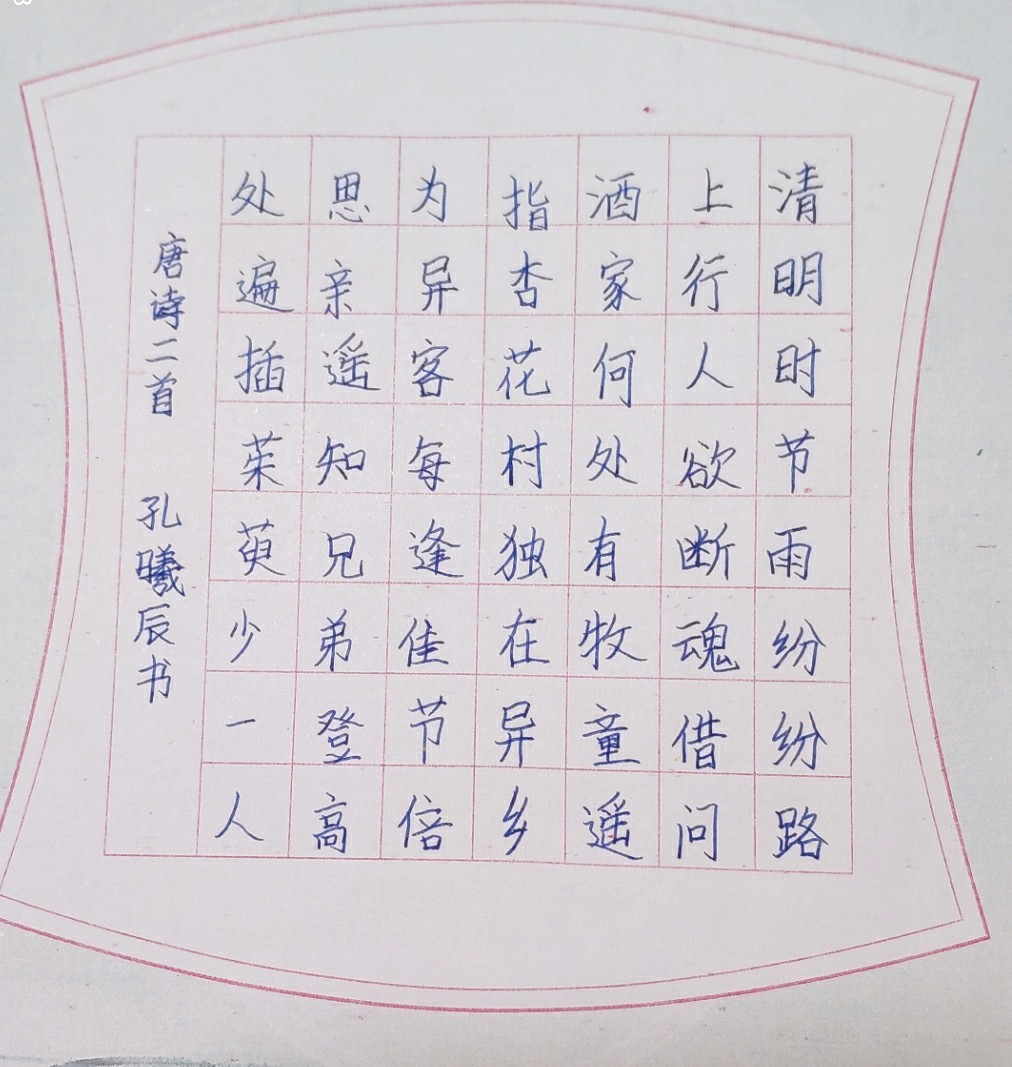 清明时节雨纷纷路
上行人欲断魂借问
酒家何处有牧童遥
指杏花村独在异乡
为异客每逢佳节倍
思亲遥知兄弟登高
处遍插茱萸少一人
唐诗二首 孔曦辰书